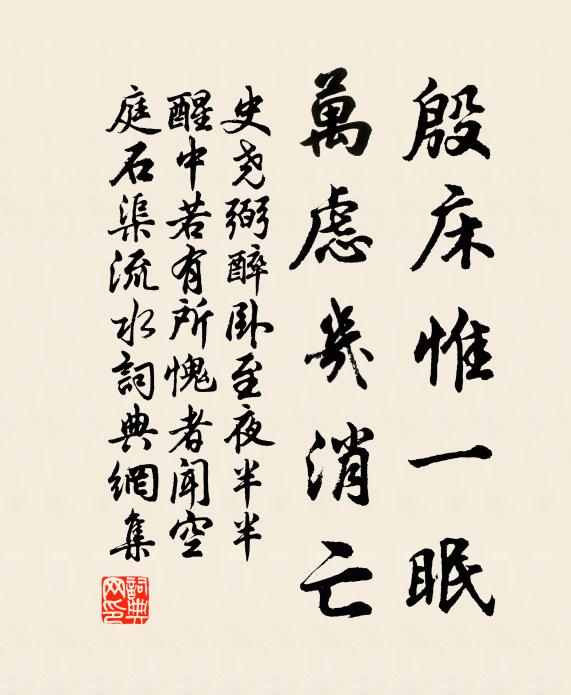 殷床惟一眠
萬慮幾消亡
史尧弼醉卧至夜半半
醒中若有所愧者闻空
庭石渠流水詞典網集